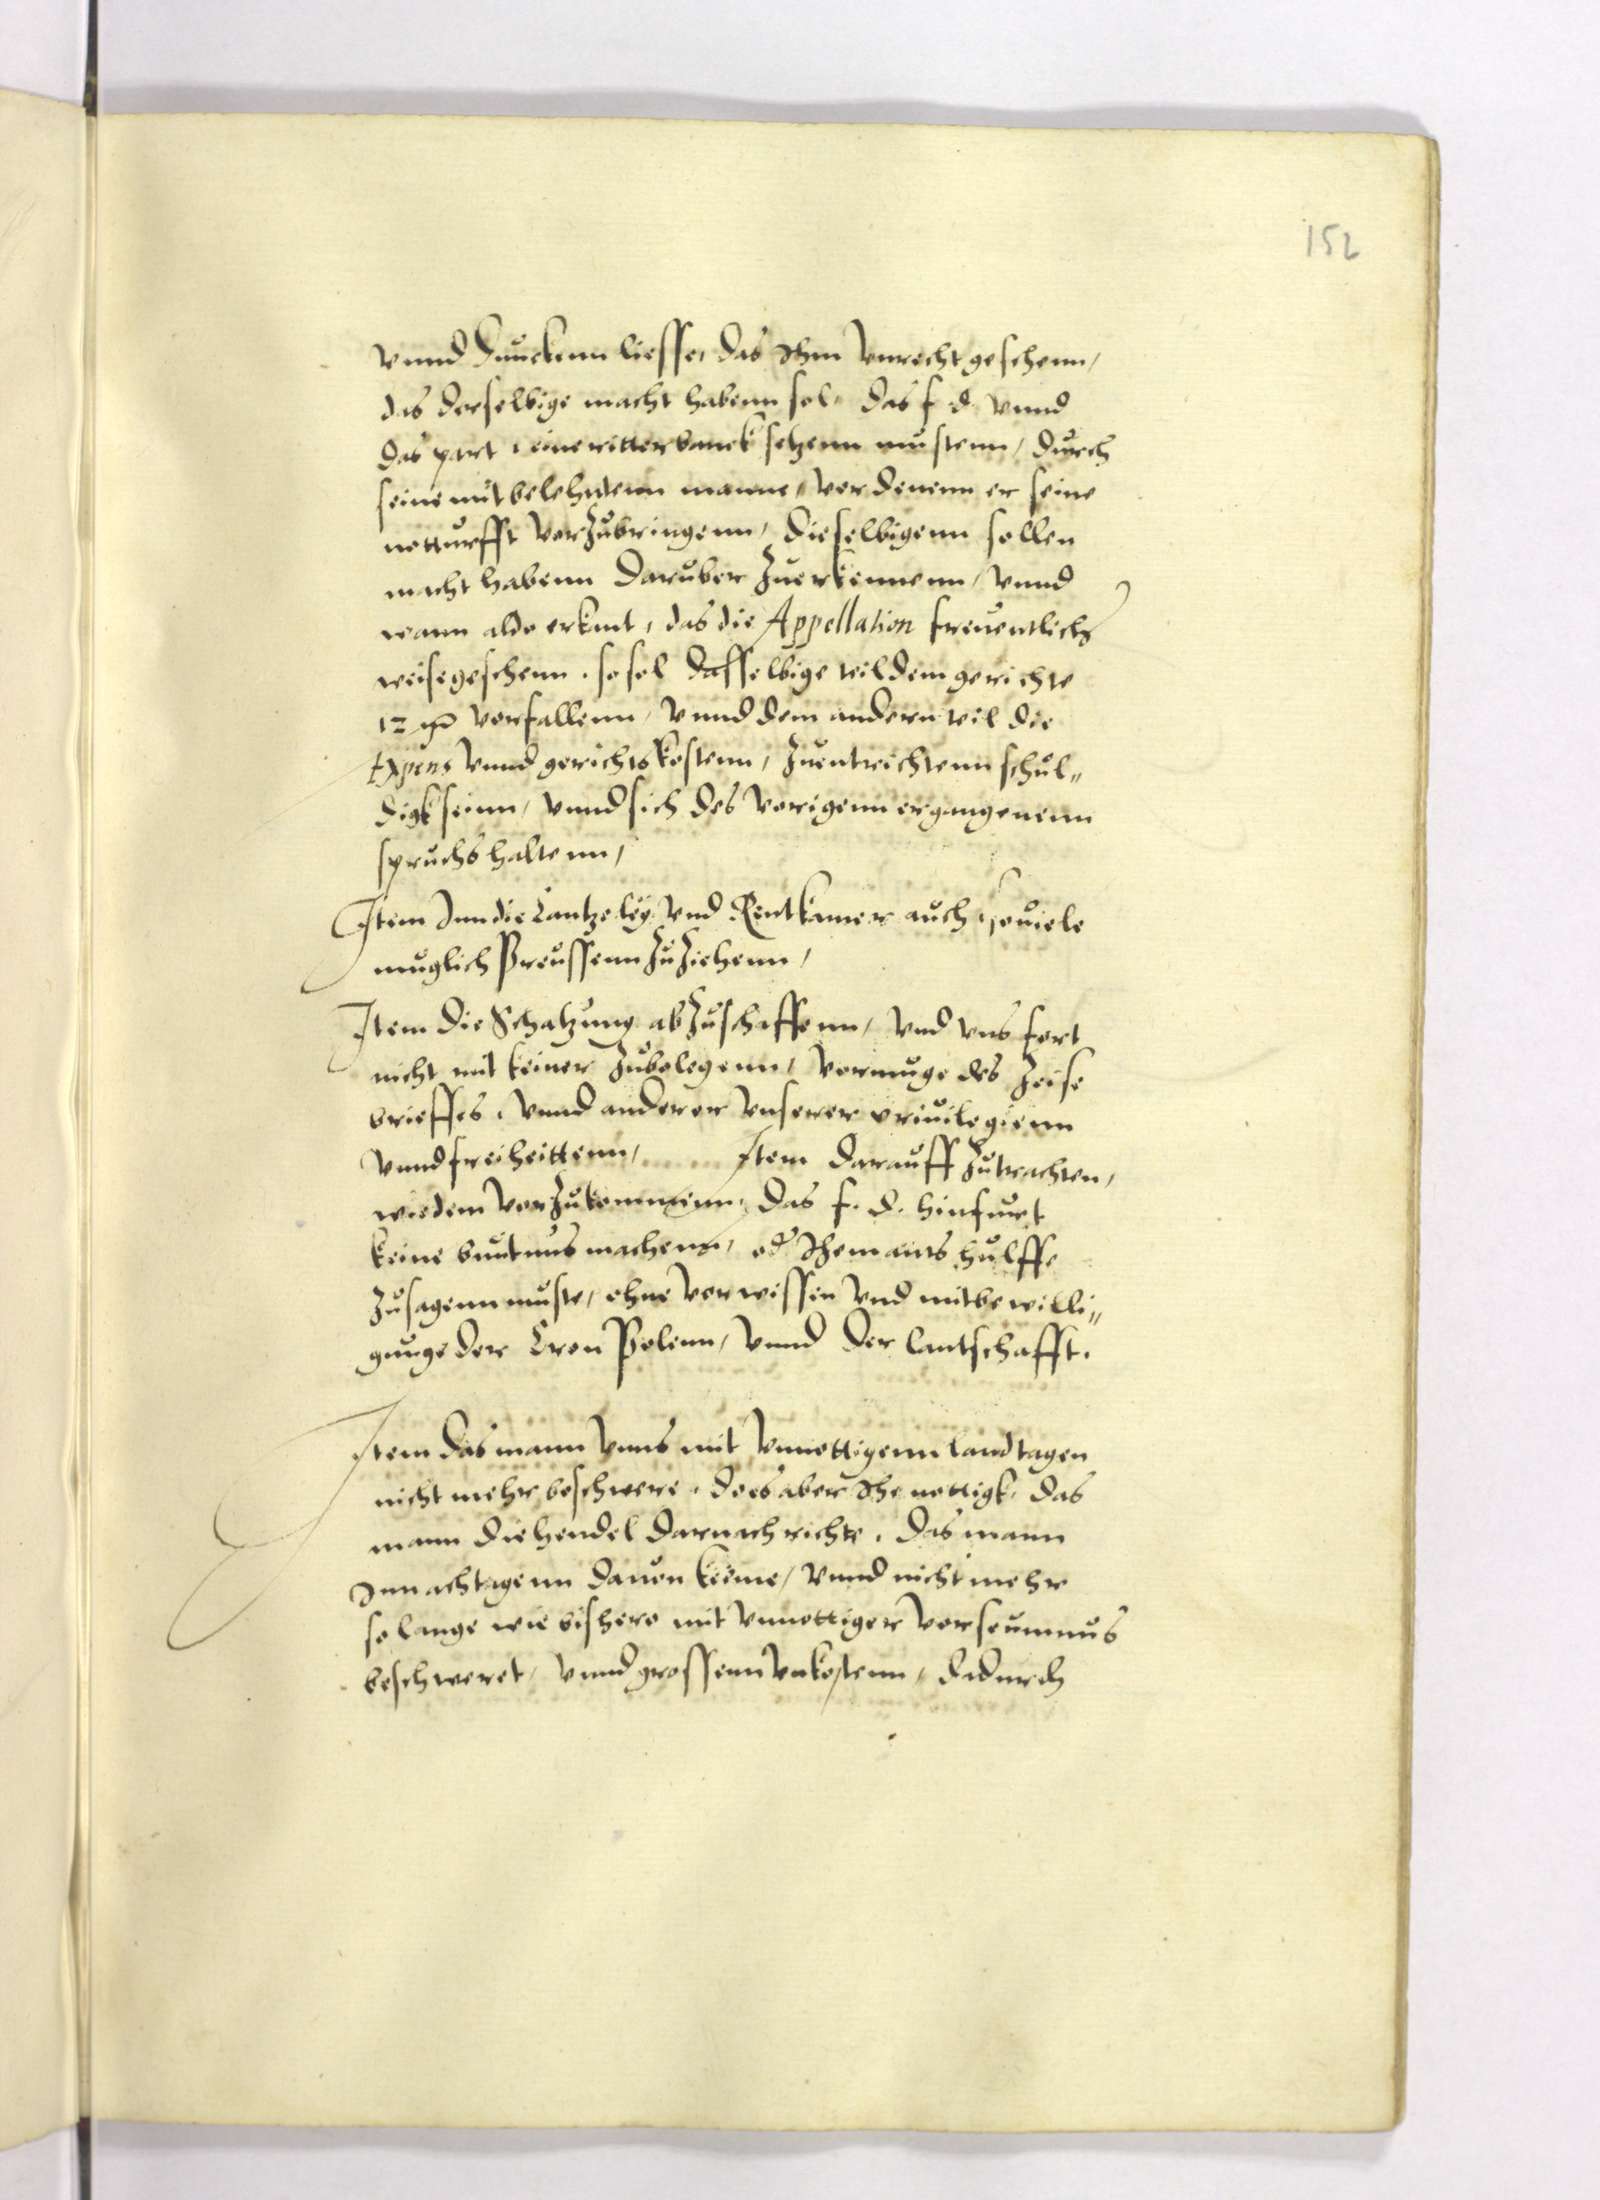 152
vnnd dunckenn liesse, das Ihm vnrecht geschenn,
das derselbige macht habenn sol, das f d vnnd
das part, eine ritterbanck setzenn mustenn, durch
seine mitbelehntenn manne, vor denenn er seine
notturfft vorzubringenn, dieselbigenn sollen
macht habenn daruber zuerkennenn, vnnd
wann aldo erkant, das die Appellation freuentlich
weise geschenn, so sol dasselbige teil dem gerichte
12 vorfallenn, vnnd dem andern teil die
Expens vnnd gerichtskostenn, zuentrichtenn schul„
digk seinn, vnnd sich des vorigenn ergangenenn
spruchs haltenn,
Item Inn die Cantzeley vnd Rentkamer auch, souiele
muglich Preussenn zuziehenn,
Item die Schatzung abzuschaffenn, vnd vns fort
nicht mit keiner zubelegenn, vormuge des zeise
brieffes, vnnd anderer vnserer priuilegienn
vnnd freiheittenn, Item darauff zutrachten,
wie dem vorzukommenn, das f. d. hinfurt
keine buntnus machenn, od Ihemants hulffe
zusagenn muste, ohne vorwissen vnd mitbewilli„
gunge der Cron Polenn, vnnd der lantschafft.
Item das mann vnns mit vnnottigenn landtagen
nicht mehr beschwere, do es aber Ihe nottigk, das
mann die hendel darnach richte, das mann
Inn achtagenn dauon keime, vnnd nicht mehr
so lange wie bishero mit vnnottiger vorseumnus
beschweret, vnnd grossenn vnkostenn, dadurch